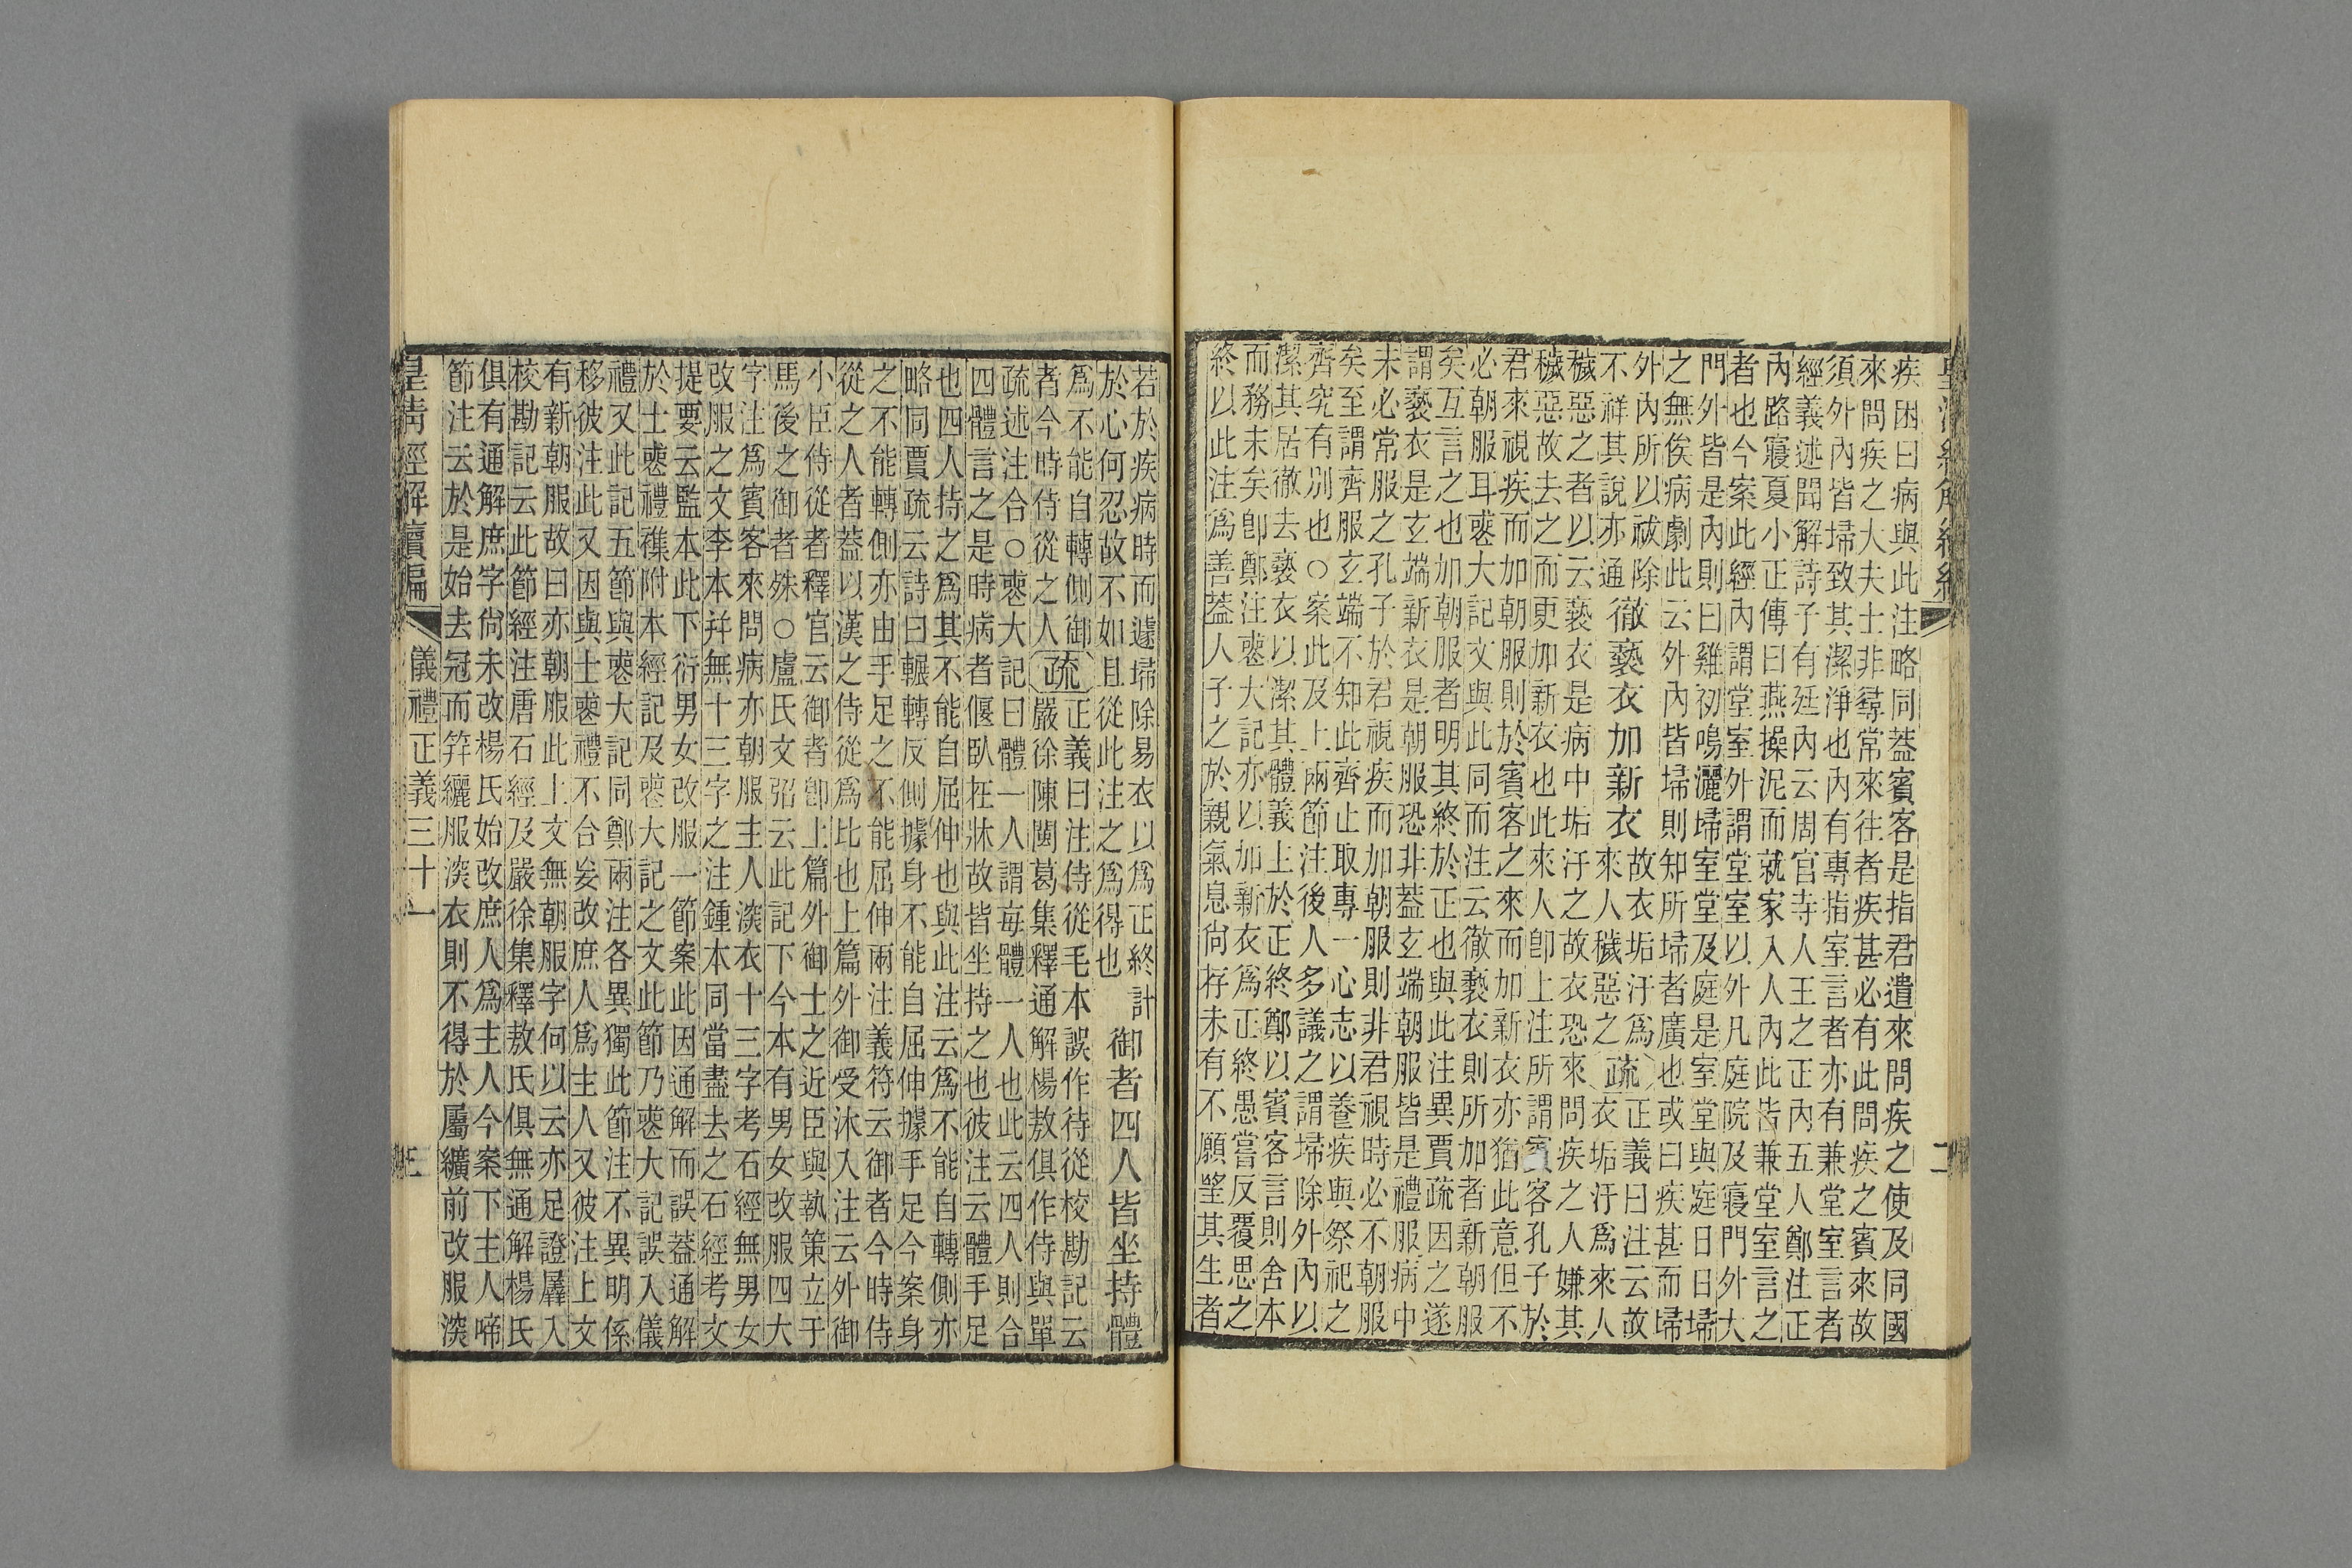 皇清經解續編
二
疾困曰病與此注略同葢賓客是指君遣來問疾之使及同國
來問疾之大夫士非尋常來往者疾甚必有此問疾之賓來故
須外內皆埽致其潔淨也內有專指室言者亦有兼堂室言者
經義述聞解詩子有廷內云周官寺人王之正內五人鄭注正
內路寢夏小正傳曰燕操泥而就家入人內此皆兼堂室言之
者也今案此經內謂堂室外謂堂室以外凡庭院及寢門外大
門外皆是內則曰雞初鳴灑埽室堂及庭是室堂與庭日日埽
之無俟病劇此云外內皆埽則知所埽者廣也或曰疾甚而埽
外內所以祓除
不祥其說亦通
徹褻衣加新衣
故衣垢汙爲
來人穢惡之
疏
正義曰注云故
衣垢汙爲來人
穢惡之者以云褻衣是病中垢汙之故衣恐來問疾之人嫌其
穢惡故去之而更加新衣也此來人卽上注所謂賓客孔子於
君來視疾而加朝服則於賓客之來而加新衣亦猶此意但不
必朝服耳䘮大記文與此同而注云徹褻衣則所加者新朝服
矣互言之也加朝服者明其終於正也與此注異賈疏因之遂
謂褻衣是玄端新衣是朝服恐非葢玄端朝服皆是禮服病中
未必常服之孔子於君視疾而加朝服則非君視時必不朝服
矣至謂齊服玄端不知此齊止取專一心志以養疾與祭祀之
齊究有別也○案此及上兩節注後人多議之謂埽除外內以
潔其居徹去褻衣以潔其體義上於正終鄭以賓客言則舍本
而務末矣卽鄭注䘮大記亦以加新衣爲正終愚嘗反覆思之
終以此注爲善葢人子之於親氣息尙存未有不願望其生者
若於疾病時而遽埽除易衣以爲正終計
於心何忍故不如且從此注之爲得也
御者四人皆坐持體
爲不能自轉側御
者今時侍從之人
疏
正義曰注侍從毛本誤作待從校勘記云
嚴徐陳閩葛集釋通解楊敖俱作侍與單
疏述注合○䘮大記曰體一人謂每體一人也此云四人則合
四體言之是時病者偃臥在牀故皆坐持之也彼注云體手足
也四人持之爲其不能自屈伸也與此注云爲不能自轉側亦
略同賈疏云詩曰輾轉反側據身不能自屈伸據手足今案身
之不能轉側亦由手足之不能屈伸兩注義符云御者今時侍
從之人者葢以漢之侍從爲此也上篇外御受沐入注云外御
小臣侍從者釋官云御者卽上篇外御士之近臣與執策立于
馬後之御者殊○盧氏文弨云此記下今本有男女改服四大
字注爲賓客來問病亦朝服主人深衣十三字考石經無男女
改服之文李本幷無十三字之注鍾本同當盡去之石經考文
提要云監本此下衍男女改服一節案此因通解而誤葢通解
於士䘮禮襍附本經記及䘮大記之文此節乃䘮大記誤入儀
禮又此記五節與䘮大記同鄭兩注各異獨此節注不異明係
移彼注此又因與士䘮禮不合妄改庶人爲主人又彼注上文
有新朝服故曰亦朝服此上文無朝服字何以云亦足證羼入
校勘記云此節經注唐石經及嚴徐集釋敖氏俱無通解楊氏
俱有通解庶字尙未改楊氏始改庶人爲主人今案下主人啼
節注云於是始去冠而笄纚服深衣則不得於屬纊前改服深
皇清經解續編
儀禮正義三十一
三